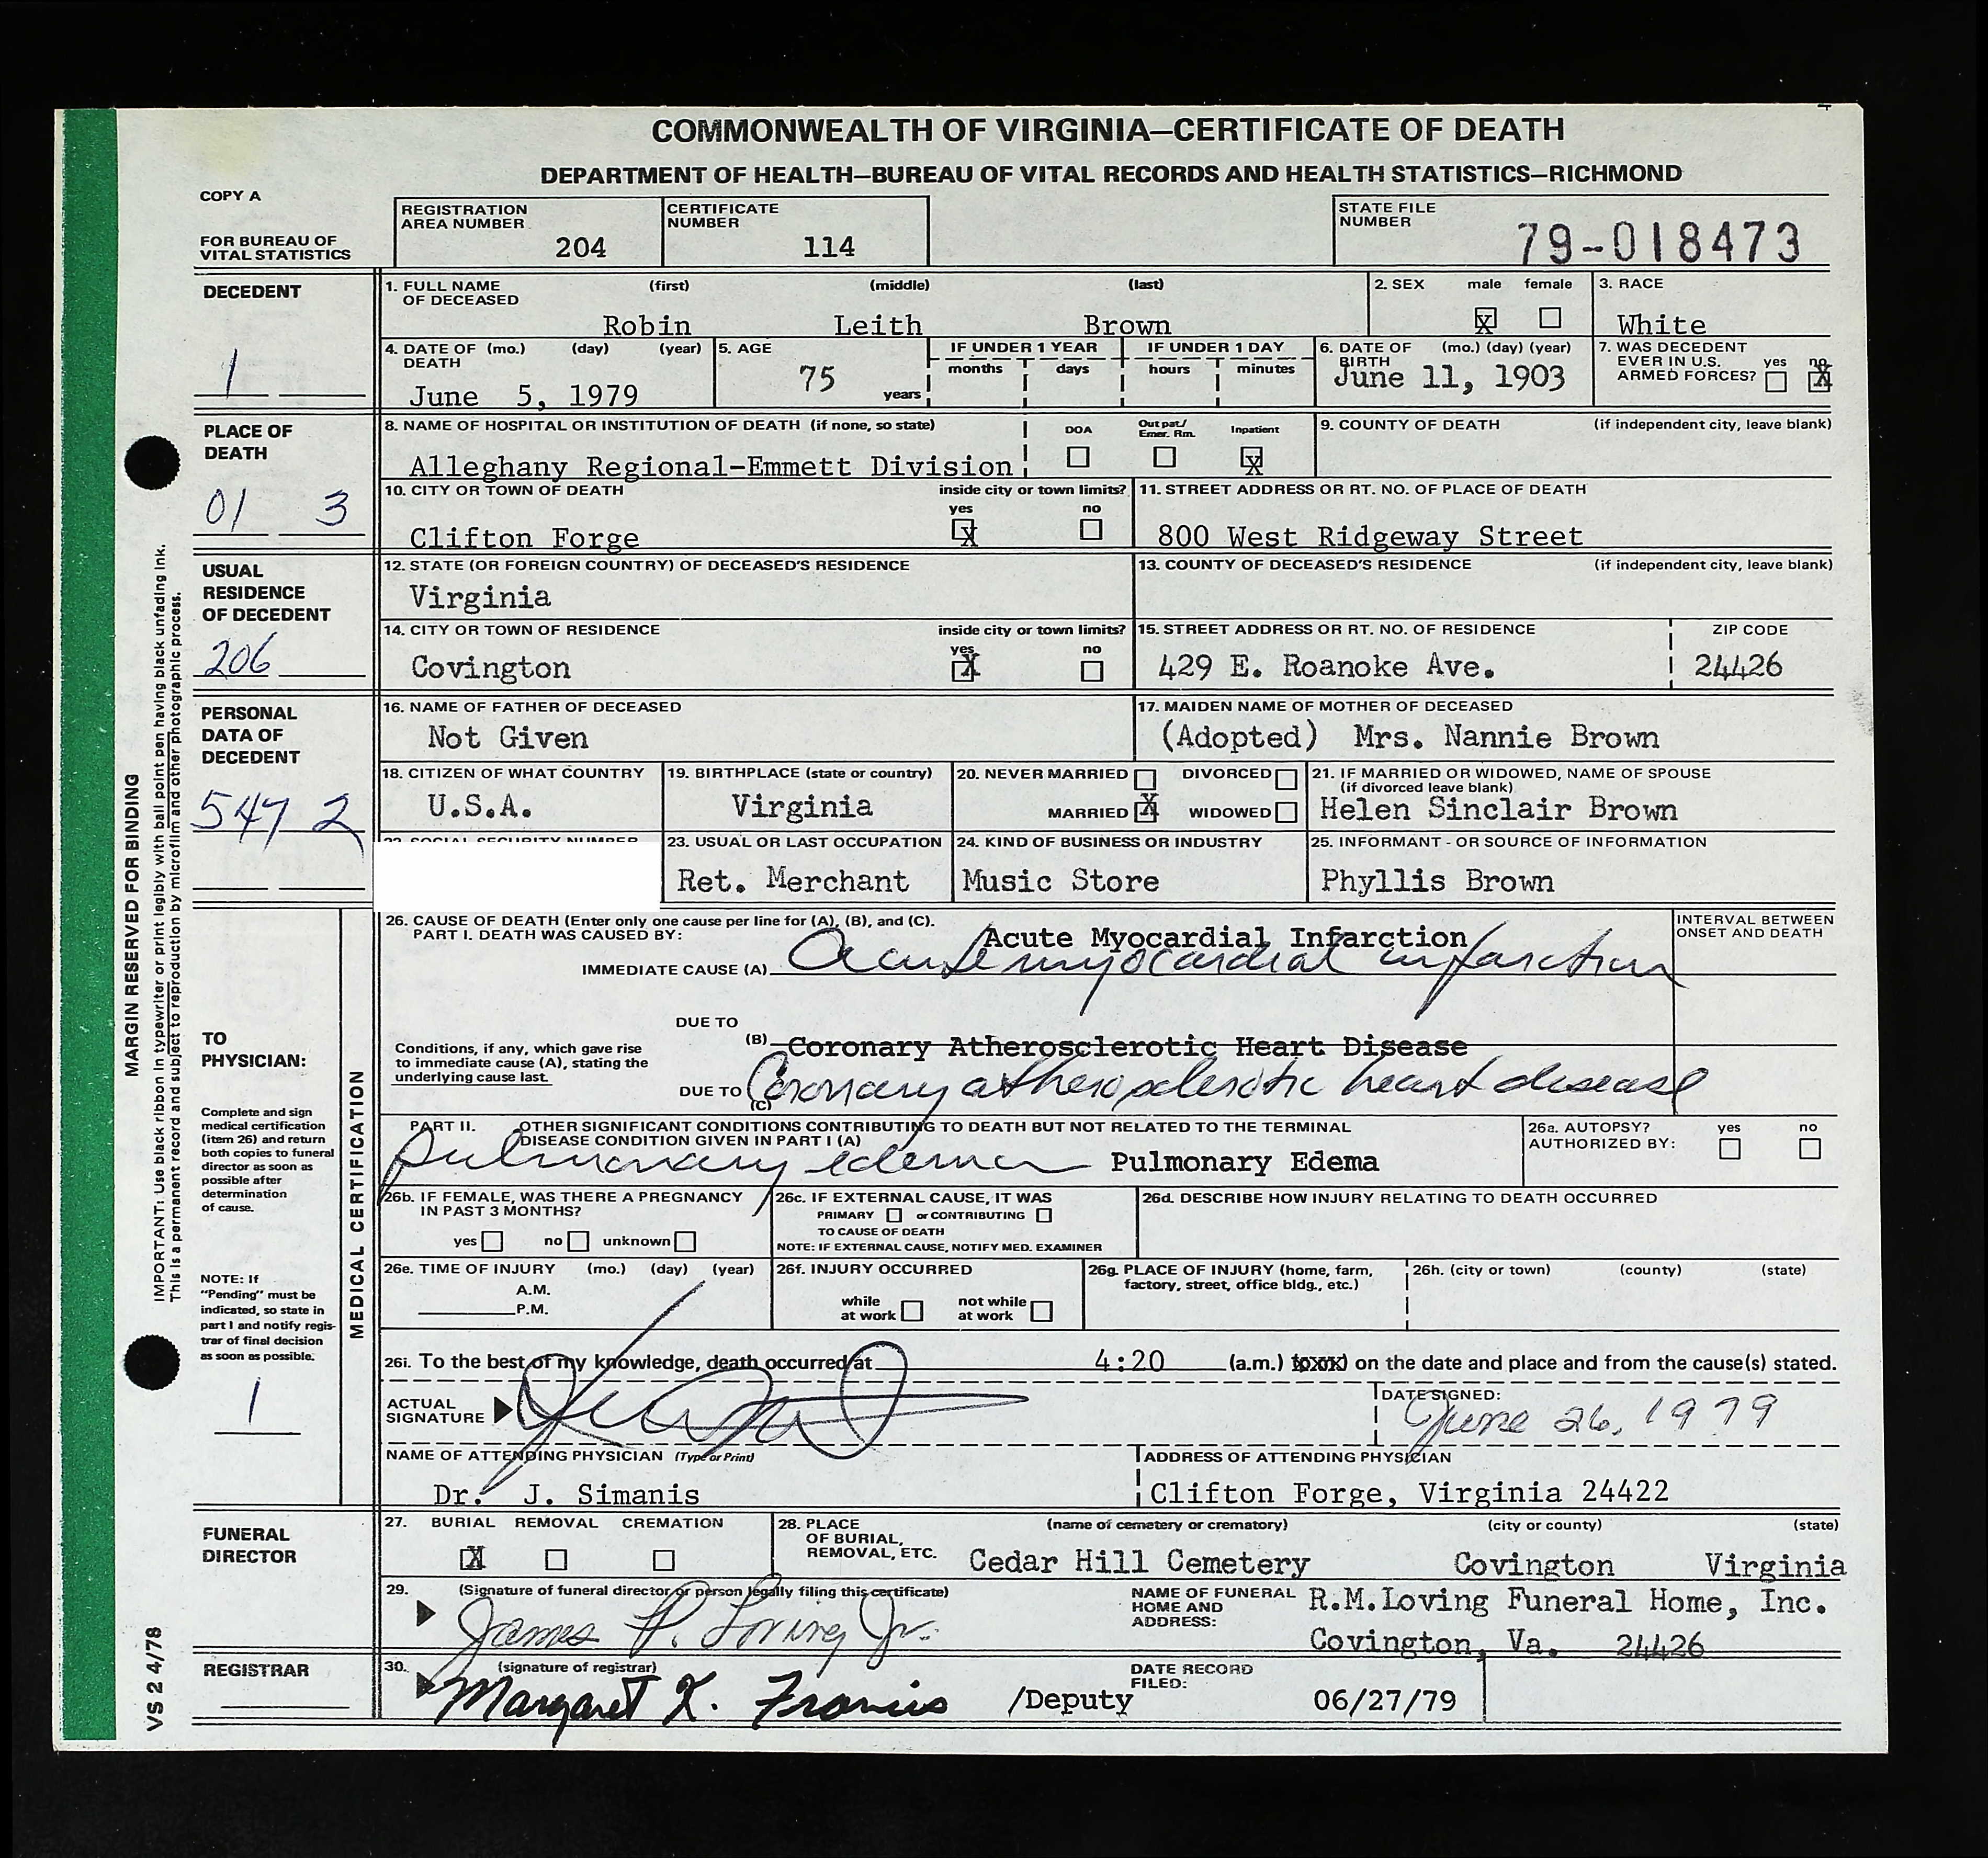 COMMONWEALTH OF VIRGINIA—CERTIFICATE OF DEATH
DEPARTMENT OF HEALTH—BUREAU OF VITAL RECORDS AND HEALTH STATISTICS—RICHMOND
COPY A
FOR BUREAU OF VITAL STATISTICS
REGISTRATION AREA NUMBER 204
CERTIFICATE NUMBER 114
STATE FILE NUMBER 79-018473
DECEDENT
1
1. FULL NAME OF DECEASED (first) (middle) (last)
Robin Leith Brown
2. SEX male X female
3. RACE White
4. DATE OF DEATH (mo.) (day) (year)
June 5, 1979
5. AGE 75 years
IF UNDER 1 YEAR months days
IF UNDER 1 DAY hours minutes
6. DATE OF BIRTH (mo.) (day) (year)
June 11, 1903
7. WAS DECEDENT EVER IN U.S. ARMED FORCES? yes no X
PLACE OF DEATH
01 3
8. NAME OF HOSPITAL OR INSTITUTION OF DEATH (if none, so state)
Alleghany Regional-Emmett Division
DOA Out pat./ Emer. Rm. Inpatient X
9. COUNTY OF DEATH (if independent city, leave blank)
10. CITY OR TOWN OF DEATH inside city or town limits? yes X no
Clifton Forge
11. STREET ADDRESS OR RT. NO. OF PLACE OF DEATH
800 West Ridgeway Street
USUAL RESIDENCE OF DECEDENT
206
12. STATE (OR FOREIGN COUNTRY) OF DECEASED'S RESIDENCE
Virginia
13. COUNTY OF DECEASED'S RESIDENCE (if independent city, leave blank)
14. CITY OR TOWN OF RESIDENCE inside city or town limits? yes X no
Covington
15. STREET ADDRESS OR RT. NO. OF RESIDENCE ZIP CODE
429 E. Roanoke Ave. 24426
PERSONAL DATA OF DECEDENT
547 2
16. NAME OF FATHER OF DECEASED
Not Given
17. MAIDEN NAME OF MOTHER OF DECEASED
(Adopted) Mrs. Nannie Brown
18. CITIZEN OF WHAT COUNTRY
U.S.A.
19. BIRTHPLACE (state or country)
Virginia
20. NEVER MARRIED DIVORCED
MARRIED X WIDOWED
21. IF MARRIED OR WIDOWED, NAME OF SPOUSE (if divorced leave blank)
Helen Sinclair Brown
22. SOCIAL SECURITY NUMBER
23. USUAL OR LAST OCCUPATION
Ret. Merchant
24. KIND OF BUSINESS OR INDUSTRY
Music Store
25. INFORMANT - OR SOURCE OF INFORMATION
Phyllis Brown
TO PHYSICIAN:
Complete and sign medical certification (item 26) and return both copies to funeral director as soon as possible after determination of cause.
NOTE: If "Pending" must be indicated, so state in part I and notify registrar of final decision as soon as possible.
1
MEDICAL CERTIFICATION
26. CAUSE OF DEATH (Enter only one cause per line for (A), (B), and (C).
PART I. DEATH WAS CAUSED BY:
INTERVAL BETWEEN ONSET AND DEATH
Acute Myocardial Infarction
IMMEDIATE CAUSE (A) Acute myocardial infarction
DUE TO
(B) Coronary Atherosclerotic Heart Disease
Conditions, if any, which gave rise to immediate cause (A), stating the underlying cause last.
DUE TO (C) Coronary atherosclerotic heart disease
PART II. OTHER SIGNIFICANT CONDITIONS CONTRIBUTING TO DEATH BUT NOT RELATED TO THE TERMINAL DISEASE CONDITION GIVEN IN PART I (A)
Pulmonary edema Pulmonary Edema
26a. AUTOPSY? yes no
AUTHORIZED BY:
26b. IF FEMALE, WAS THERE A PREGNANCY IN PAST 3 MONTHS?
yes no unknown
26c. IF EXTERNAL CAUSE, IT WAS
PRIMARY or CONTRIBUTING
TO CAUSE OF DEATH
NOTE: IF EXTERNAL CAUSE, NOTIFY MED. EXAMINER
26d. DESCRIBE HOW INJURY RELATING TO DEATH OCCURRED
26e. TIME OF INJURY (mo.) (day) (year)
A.M.
P.M.
26f. INJURY OCCURRED
while at work not while at work
26g. PLACE OF INJURY (home, farm, factory, street, office bldg., etc.)
26h. (city or town) (county) (state)
26i. To the best of my knowledge, death occurred at 4:20 (a.m.) on the date and place and from the cause(s) stated.
ACTUAL SIGNATURE
DATE SIGNED:
June 26, 1979
NAME OF ATTENDING PHYSICIAN (Type or Print)
Dr. J. Simanis
ADDRESS OF ATTENDING PHYSICIAN
Clifton Forge, Virginia 24422
FUNERAL DIRECTOR
27. BURIAL X REMOVAL CREMATION
28. PLACE OF BURIAL, REMOVAL, ETC. (name of cemetery or crematory) (city or county) (state)
Cedar Hill Cemetery Covington Virginia
29. (Signature of funeral director or person legally filing this certificate)
James P. Loving Jr.
NAME OF FUNERAL HOME AND ADDRESS:
R.M.Loving Funeral Home, Inc.
Covington, Va. 24426
REGISTRAR
30. (signature of registrar)
Margaret K. Francis /Deputy
DATE RECORD FILED:
06/27/79
MARGIN RESERVED FOR BINDING
IMPORTANT: Use black ribbon in typewriter or print legibly with ball point pen having black unfading ink.
This is a permanent record and subject to reproduction by microfilm and other photographic process.
VS 2 4/78